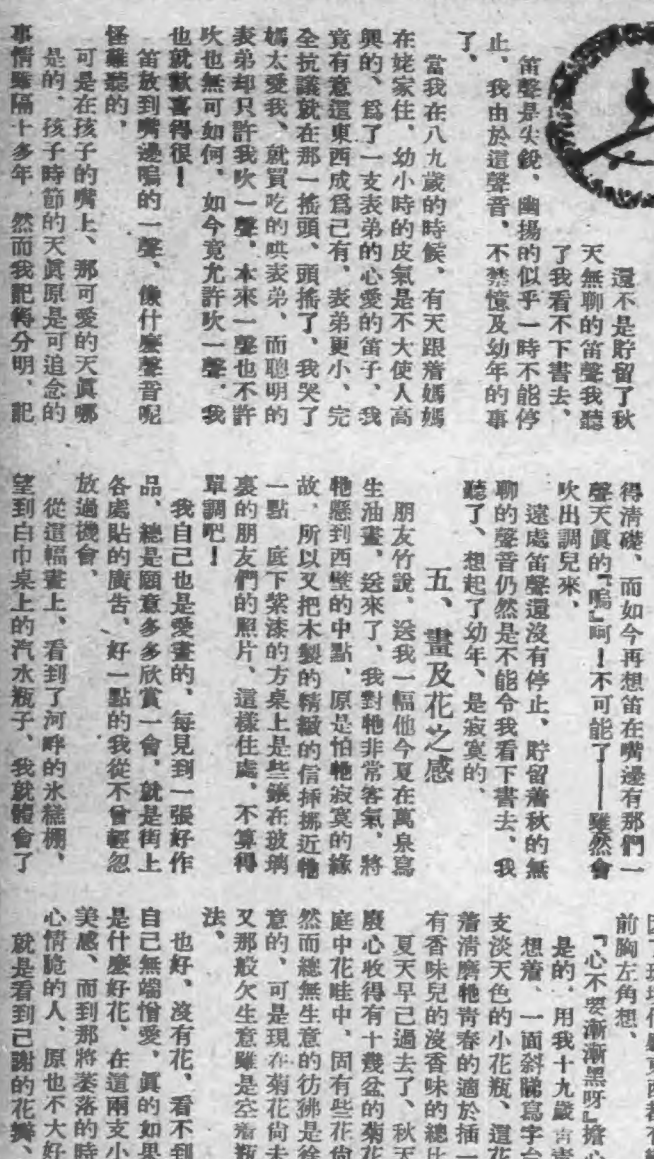 還不是貯留了秋
天無聊的笛聲我聽
了我看不下書去、
笛聲是尖銳、幽揚的似乎一時不能停
止、我由於這聲音、不禁憶及幼年的事
了、
當我在八九歲的時候、有天跟着媽媽
在姥家住、幼小時的皮氣是不大使人高
興的、爲了一支表弟的心愛的笛子、我
竟有意這東西成爲己有、表弟更小、完
全抗議就在那一搖頭、頭搖了、我哭了
媽太愛我、就買吃的哄表弟、而聰明的
表弟却只許我吹一聲、本來一聲也不許
吹也無可如何、如今竟允許吹一聲、我
也就歡喜得很!
笛放到嘴邊嗚的一聲、像什麼聲音呢
怪難聽的、
可是在孩子的嘴上、那可愛的天眞哪
是的、孩子時節的天眞原是可追念的
事情雖隔十多年、然而我記得分明、記
得清礎、而如今再想笛在嘴邊有那們一
聲天眞的『嗚』呵!不可能了——雖然會
吹出調兒來、
遠處笛聲還沒有停止、貯留着秋的無
聊的聲音仍然是不能令我看下書去、我
聽了、想起了幼年、是寂寞的、
五、畫及花之感
朋友竹說、送我一幅他今夏在萬泉寫
生油畫、送來了、我對牠非常客氣、將
牠懸到西壁的中點、原是怕牠寂寞的緣
故、所以又把木製的精緻的信挿挪近牠
一點 底下紫漆的方桌上是些鑲在玻璃
裏的朋友們的照片、這樣住處、不算得
單調吧!
我自己也是愛畫的、每見到一張好作
品、總是願意多多欣賞一會、就是街上
各處貼的廣告、好一點的我從不曾輕忽
放過機會、
從這幅畫上、看到了河畔的氷糕棚、
望到白巾桌上的汽水瓶子、我就體會了
前胸左角想、
『心不要漸漸黑呀』擔心
是的、用我十九歲青
想着、一面斜睇寫字台
支淡天色的小花瓶、這花
着清磨牠青春的適於插一
有香味兒的沒香味的總比
夏天早已過去了、秋天
廢心收得有十幾盆的菊花
庭中花畦中、固有些花尙
然而總無生意的彷彿是徐
意的、可是現在菊花尙未
又那般欠生意雖是空着瓶
法、
也好、沒有花、看不到
自己無端憎愛、眞的如果
是什麼好花、在這兩支小
美感、而到那將萎落的時
心情脆的人、原也不大好
就是看到己謝的花瓣、